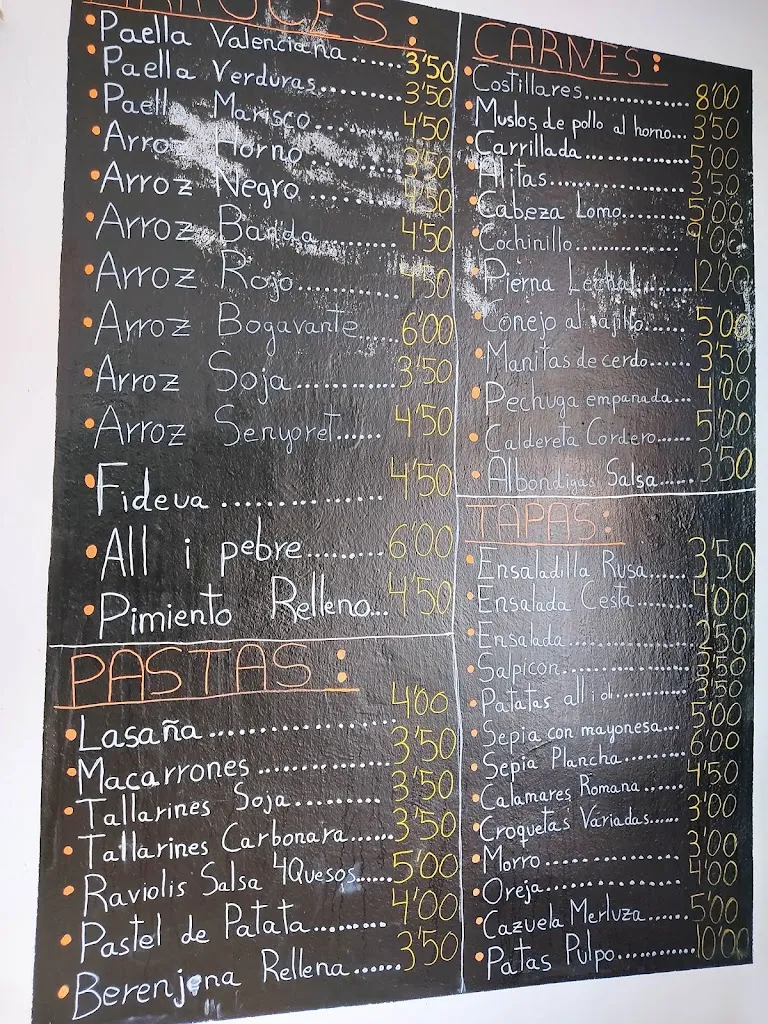 ARROCES:
Paella Valenciana...... 3'50
Paella Verduras....... 3'50
Paella Marisco........ 4'50
Arroz Horno........ 3'50
Arroz Negro........ 4'50
Arroz Banda........ 4'50
Arroz Rojo........ 4'50
Arroz Bogavante.... 6'00
Arroz Soja.......... 3'50
Arroz Senyoret...... 4'50
Fideua ............... 4'50
All i pebre........ 6'00
Pimiento Relleno... 4'50
PASTAS:
Lasaña ................ 4'00
Macarrones ............. 3'50
Tallarines Soja......... 3'50
Tallarines Carbonara...... 3'50
Raviolis Salsa 4Quesos..... 5'00
Pastel de Patata........ 4'00
Berenjena Rellena...... 3'50
CARNES:
Costillares.............. 8'00
Muslos de pollo al horno... 3'50
Carrillada............. 5'00
Alitas................ 3'50
Cabeza Lomo....... 5'00
Cochinillo.............
Pierna Lechal...... 12'00
Conejo al ajillo..... 5'00
Manitas de cerdo..... 3'50
Pechuga empanada... 4'00
Caldereta Cordero..... 5'00
Albondigas Salsa..... 3'50
TAPAS:
Ensaladilla Rusa..... 3'50
Ensalada Cesta ........ 4'00
Ensalada.............. 3'50
Salpicon.............. 3'50
Patatas all i oli........ 3'50
Sepia con mayonesa... 5'00
Sepia Plancha........ 6'00
Calamares Romana..... 4'50
Croquetas Variadas..... 3'00
Morro................ 3'00
Oreja................ 4'00
Cazuela Merluza..... 5'00
Patas Pulpo.......... 10'00